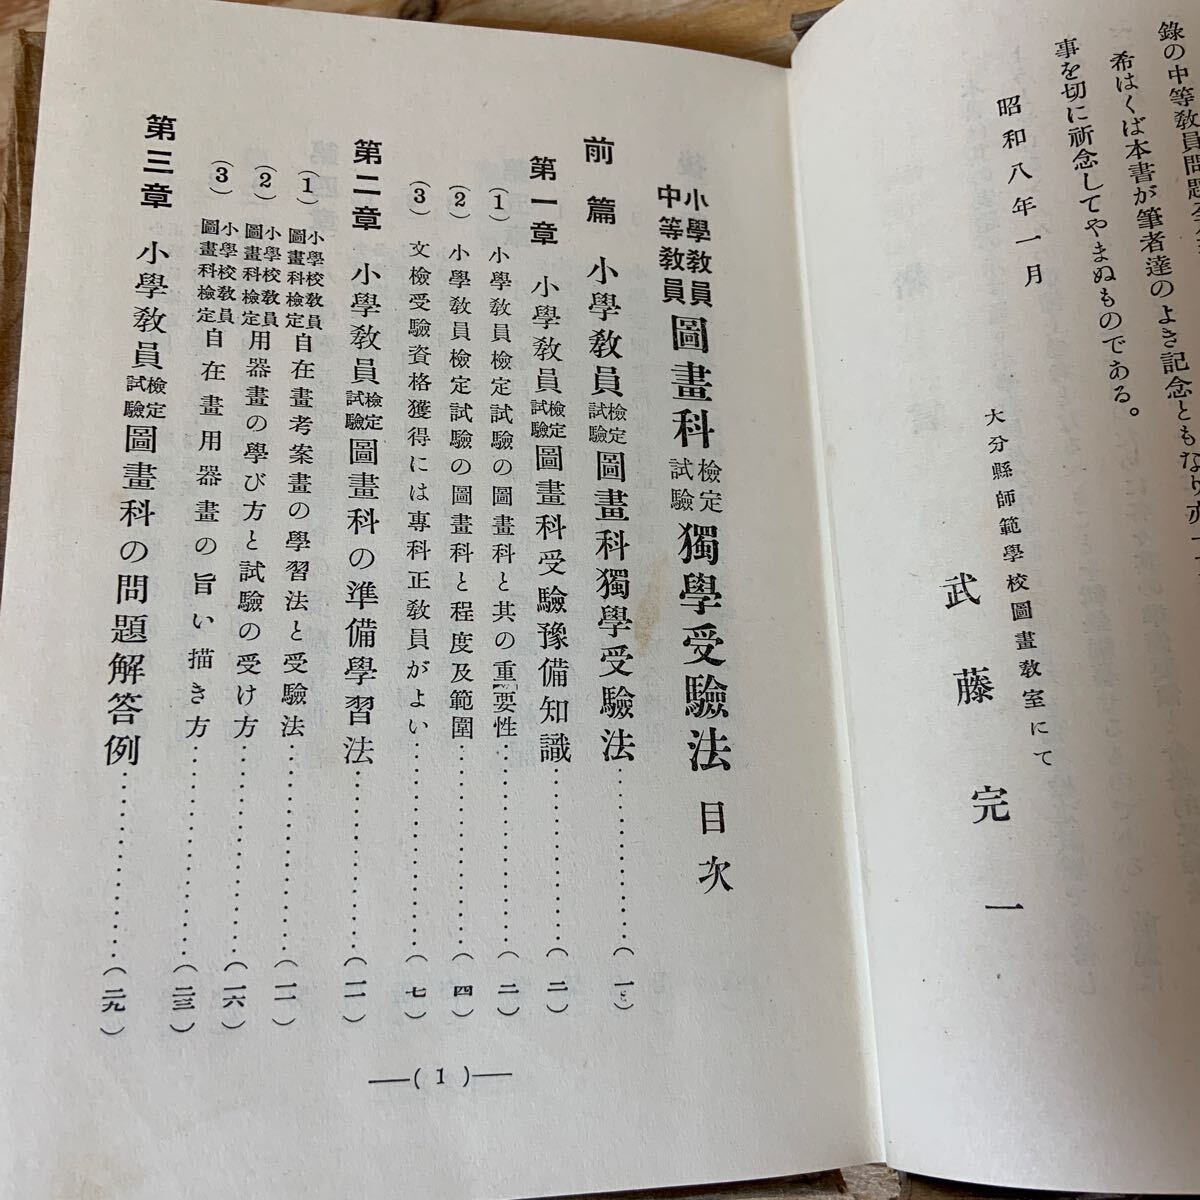 錄の中等教員問題
希はくば本書が筆者達のよき記念ともなり亦
事を切に祈念してやまぬものである。
昭和八年一月
大分縣師範學校圖畫教室にて
武藤完一
小學教員中等教員圖畫科檢定試驗獨學受驗法目次
前篇 小學教員檢定試驗圖畫科獨學受驗法…………(一)
第一章 小學教員檢定試驗圖畫科受驗豫備知識…………(二)
(1) 小學教員檢定試驗の圖畫科と其の重要性…………(二)
(2) 小學教員檢定試驗の圖畫科と程度及範圍…………(四)
(3) 文檢受驗資格獲得には專科正教員がよい…………(七)
第二章 小學教員檢定試驗圖畫科の準備學習法…………(一一)
(1) 小學校教員圖畫科檢定自在畫考案畫の學習法と受驗法…………(一一)
(2) 小學校教員圖畫科檢定用器畫の學び方と試驗の受け方…………(一六)
(3) 小學校教員圖畫科檢定自在畫用器畫の旨い描き方…………(二三)
第三章 小學教員檢定試驗圖畫科の問題解答例…………(二九)
—(1)—